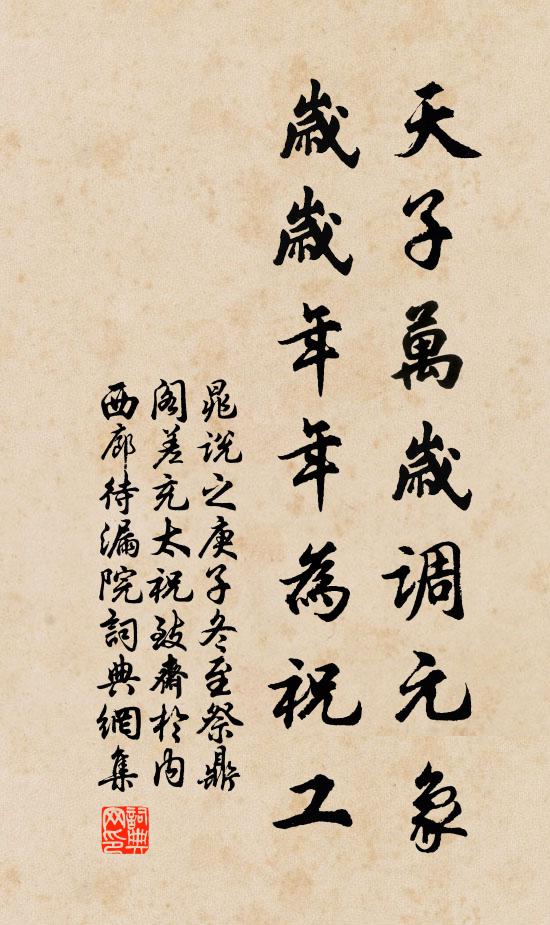 天子萬歲調元象
歲歲年年為祝工
晁说之庚子冬至祭鼎
阁差充太祝致齋於内
西廊待漏院詞典網集
詞典网印